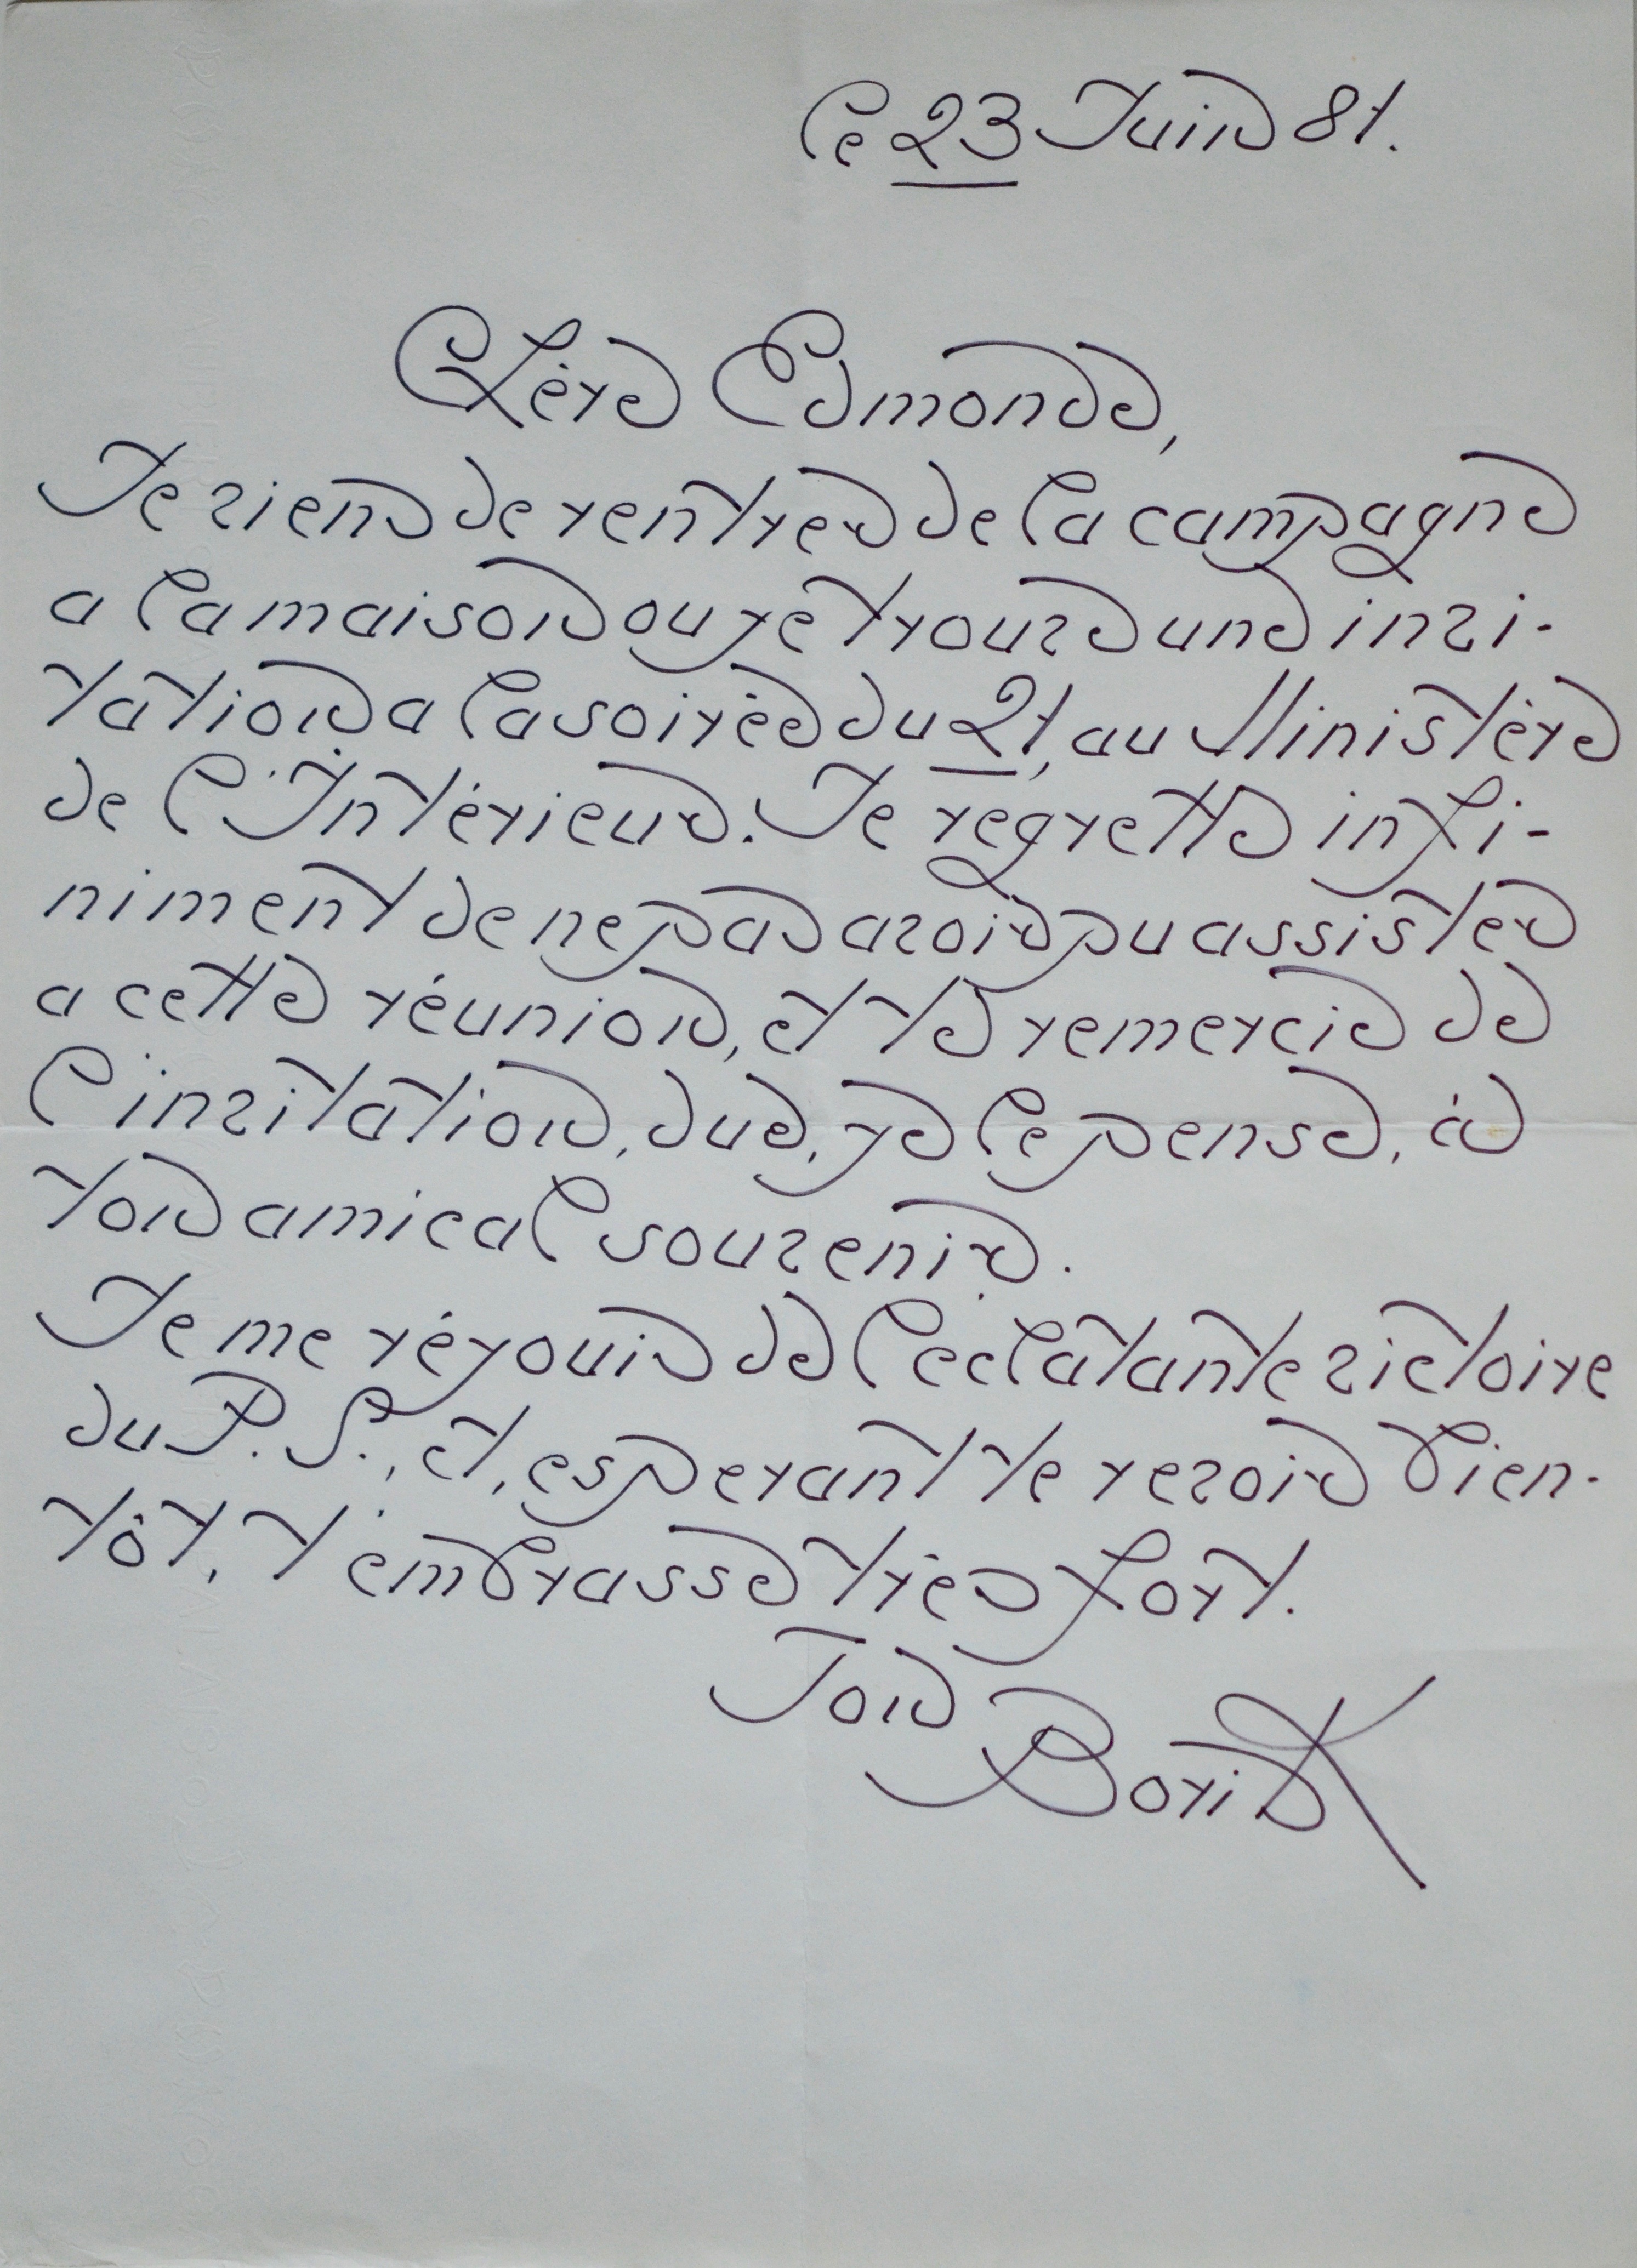 le 23 Juin 81.
Chère Edmonde,
Je viens de rentrer de la campagne
a la maison ou je trouve une invi-
tation a la soirée du 21, au Ministère
de l'Intérieur. Je regrette infi-
niment de ne pas avoir pu assister
a cette réunion, et te remercie de
l'invitation, due, je le pense, à
ton amical souvenir.
Je me réjouis de l'eclatante victoire
du P.S., et, esperant te revoir bien-
tôt, t'embrasse très fort.
Ton
Boris K